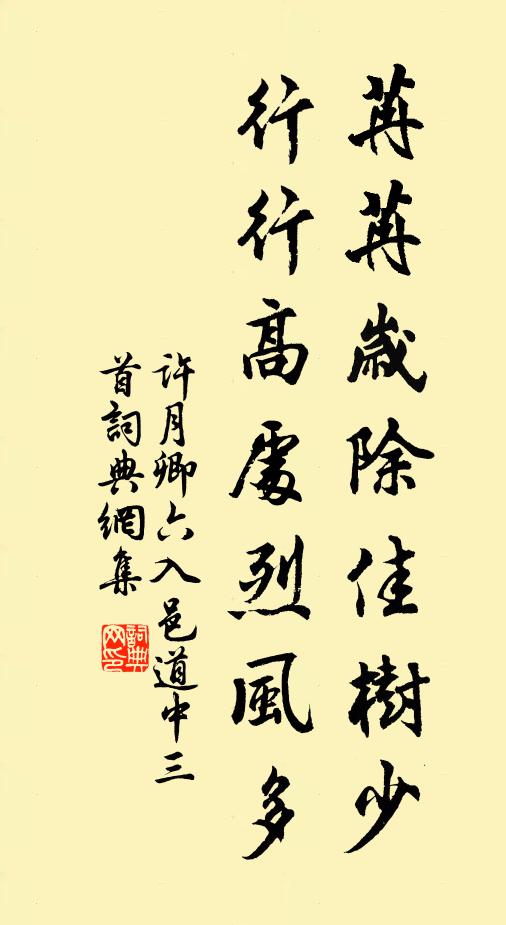 苒苒歲除佳樹少
行行高處烈風多
許月卿六入邑道中三
首詞典網集
詞典
网印